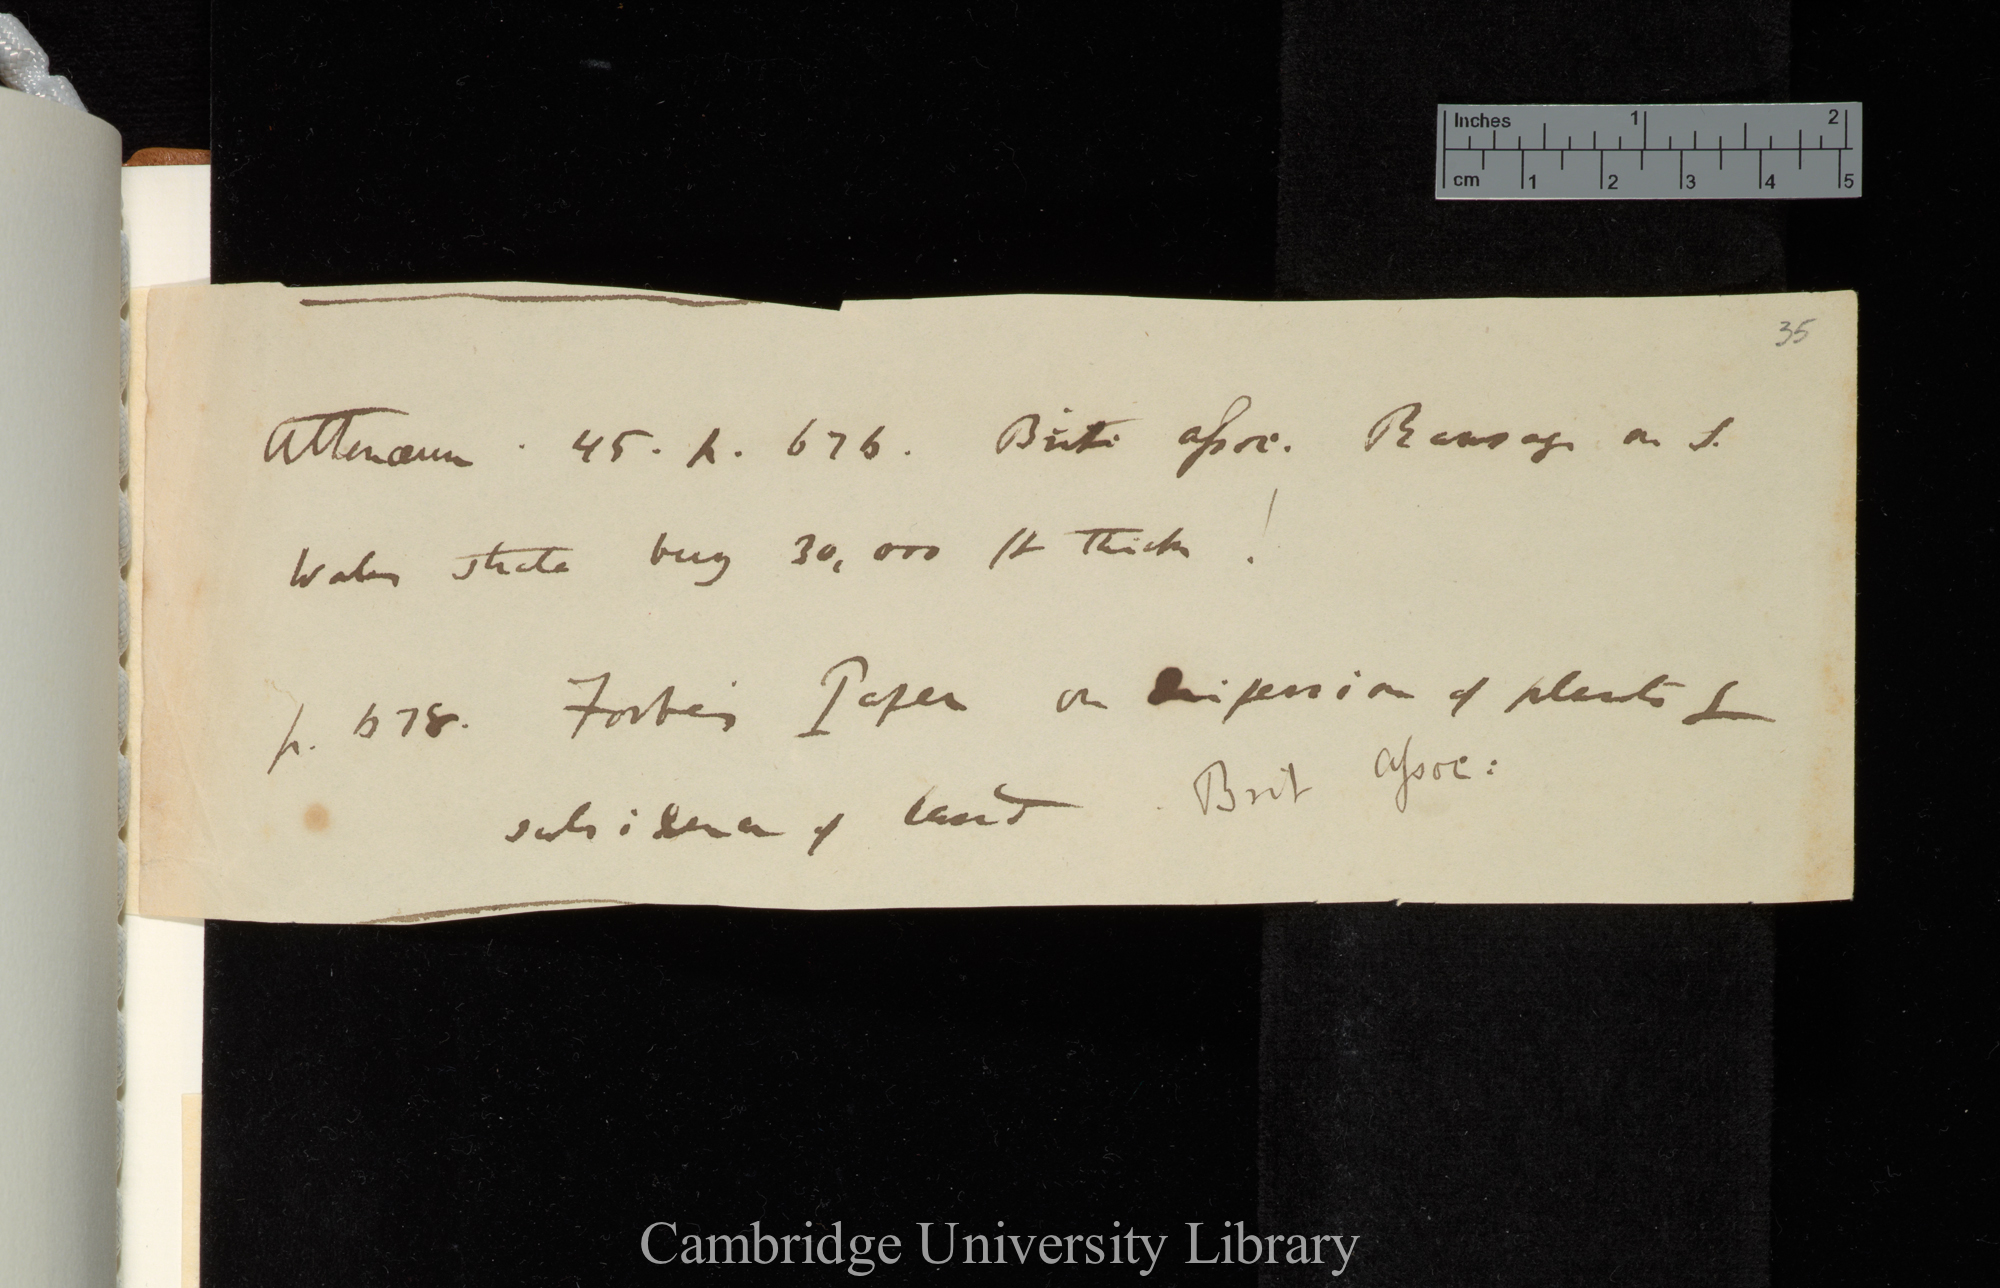 Inches 1 2
cm 1 2 3 4 5
35
Athenæum . 45. p. 676. Brit: Assoc. Ramsay on S.
Wales strata being 30,000 ft thick !
p. 678. Forbes's Paper on dispersion of plants &
subsidence of land . Brit Assoc:
Cambridge University Library